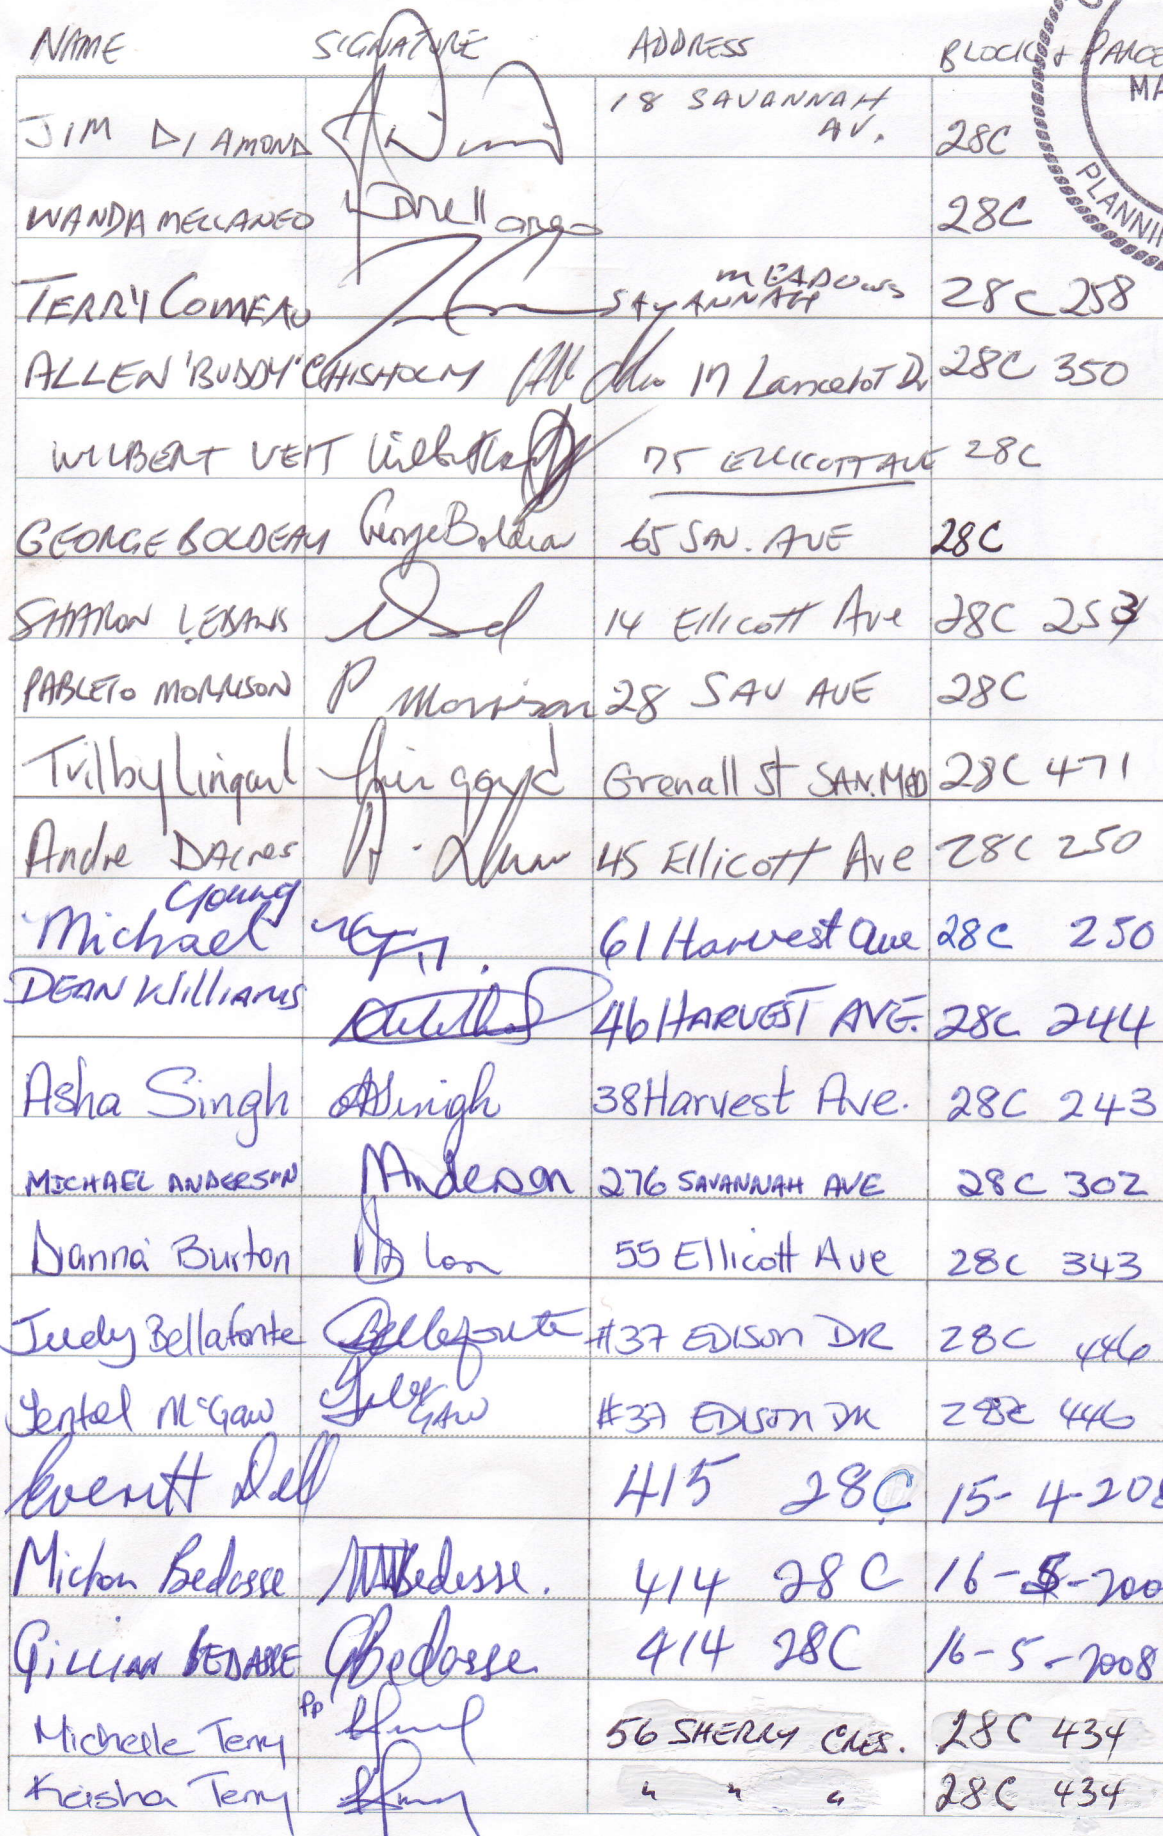 NAME SIGNATURE ADDRESS BLOCK & PARCE
MA
PLANNIN
JIM DIAMOND 18 SAVANNAH AV. 28C
WANDA MELLANEO 28C
TERRY COMEAU SAVANNAH MEADOWS 28C 258
ALLEN 'BUDDY' CHISHOLM 17 Lancelot Dr 28C 350
WILBERT VEIT 75 ELLICOTT AVE 28C
GEORGE BOLDEAU George Boldeau 65 SAV. AVE 28C
SHARON LEBANS 14 Ellicott Ave 28C 253
PABLETO MORRISON P Morrison 28 SAV AVE 28C
Trilby Lingard Lingard Grenall St SAN.MED 28C 471
Andre DAcres 45 Ellicott Ave 28C 250
Michael Young 61 Harvest Ave 28C 250
DEAN Williams 46 HARVEST AVE. 28C 244
Asha Singh ASingh 38 Harvest Ave. 28C 243
MICHAEL ANDERSON MAnderson 276 SAVANNAH AVE 28C 302
Dianna Burton 55 Ellicott Ave 28C 343
Judy Bellafonte Bellefonte #37 EDISON DR 28C 446
Yentel McGaw GAW #37 EDISON DR 28C 446
Everett Dell 415 28C 15-4-208
Michon Bedasse MBedasse. 414 28C 16-5-200
Gillian BEDASSE GBedasse 414 28C 16-5-2008
Michelle Terry pp 56 SHERRY CRES. 28C 434
Keisha Terry " " " 28C 434